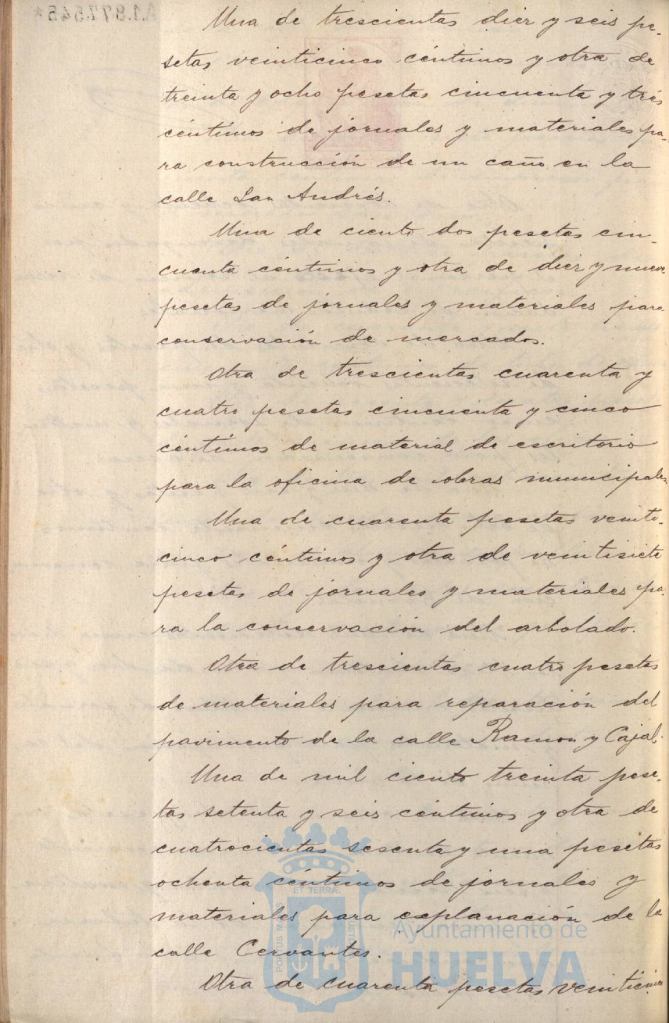 A1.877.545*
Una de trescientas diez y seis pe-
setas veinticinco céntimos y otra de
treinta y ocho pesetas cincuenta y tres
céntimos de jornales y materiales pa-
ra construcción de un caño en la
calle San Andrés.
Una de ciento dos pesetas cin-
cuenta céntimos y otra de diez y nueve
pesetas de jornales y materiales para
conservación de mercados.
Otra de trescientas cuarenta y
cuatro pesetas cincuenta y cinco
céntimos de material de escritorio
para la oficina de obras municipales
Una de cuarenta pesetas veinti-
cinco céntimos y otra de veintisiete
pesetas de jornales y materiales pa-
ra la conservación del arbolado.
Otra de trescientas cuatro pesetas
de materiales para reparación del
pavimento de la calle Ramon y Cajal.
Una de mil ciento treinta pese-
tas setenta y seis céntimos y otra de
cuatrocientas sesenta y una pesetas
ochenta céntimos de jornales y
materiales para explanación de la
calle Cervantes.
Otra de cuarenta pesetas veinticinco
Ayuntamiento de
HUELVA